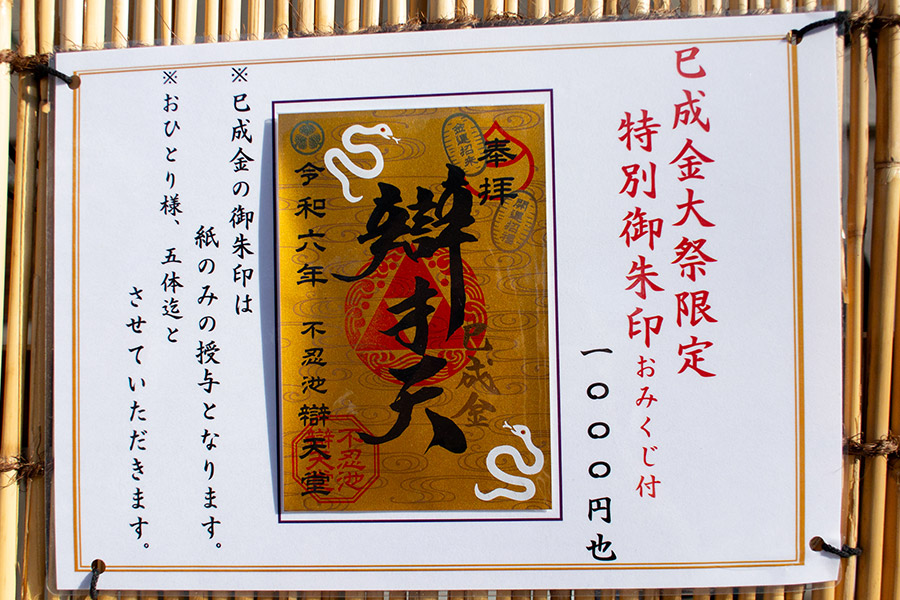 巳成金大祭限定
特別御朱印おみくじ付
一〇〇〇円也
奉拝
金運招来
開運招福
辯才天
巳成金
令和六年 不忍池辯天堂
不忍池
辯天堂
※巳成金の御朱印は
紙のみの授与となります。
※おひとり様、五体迄と
させていただきます。